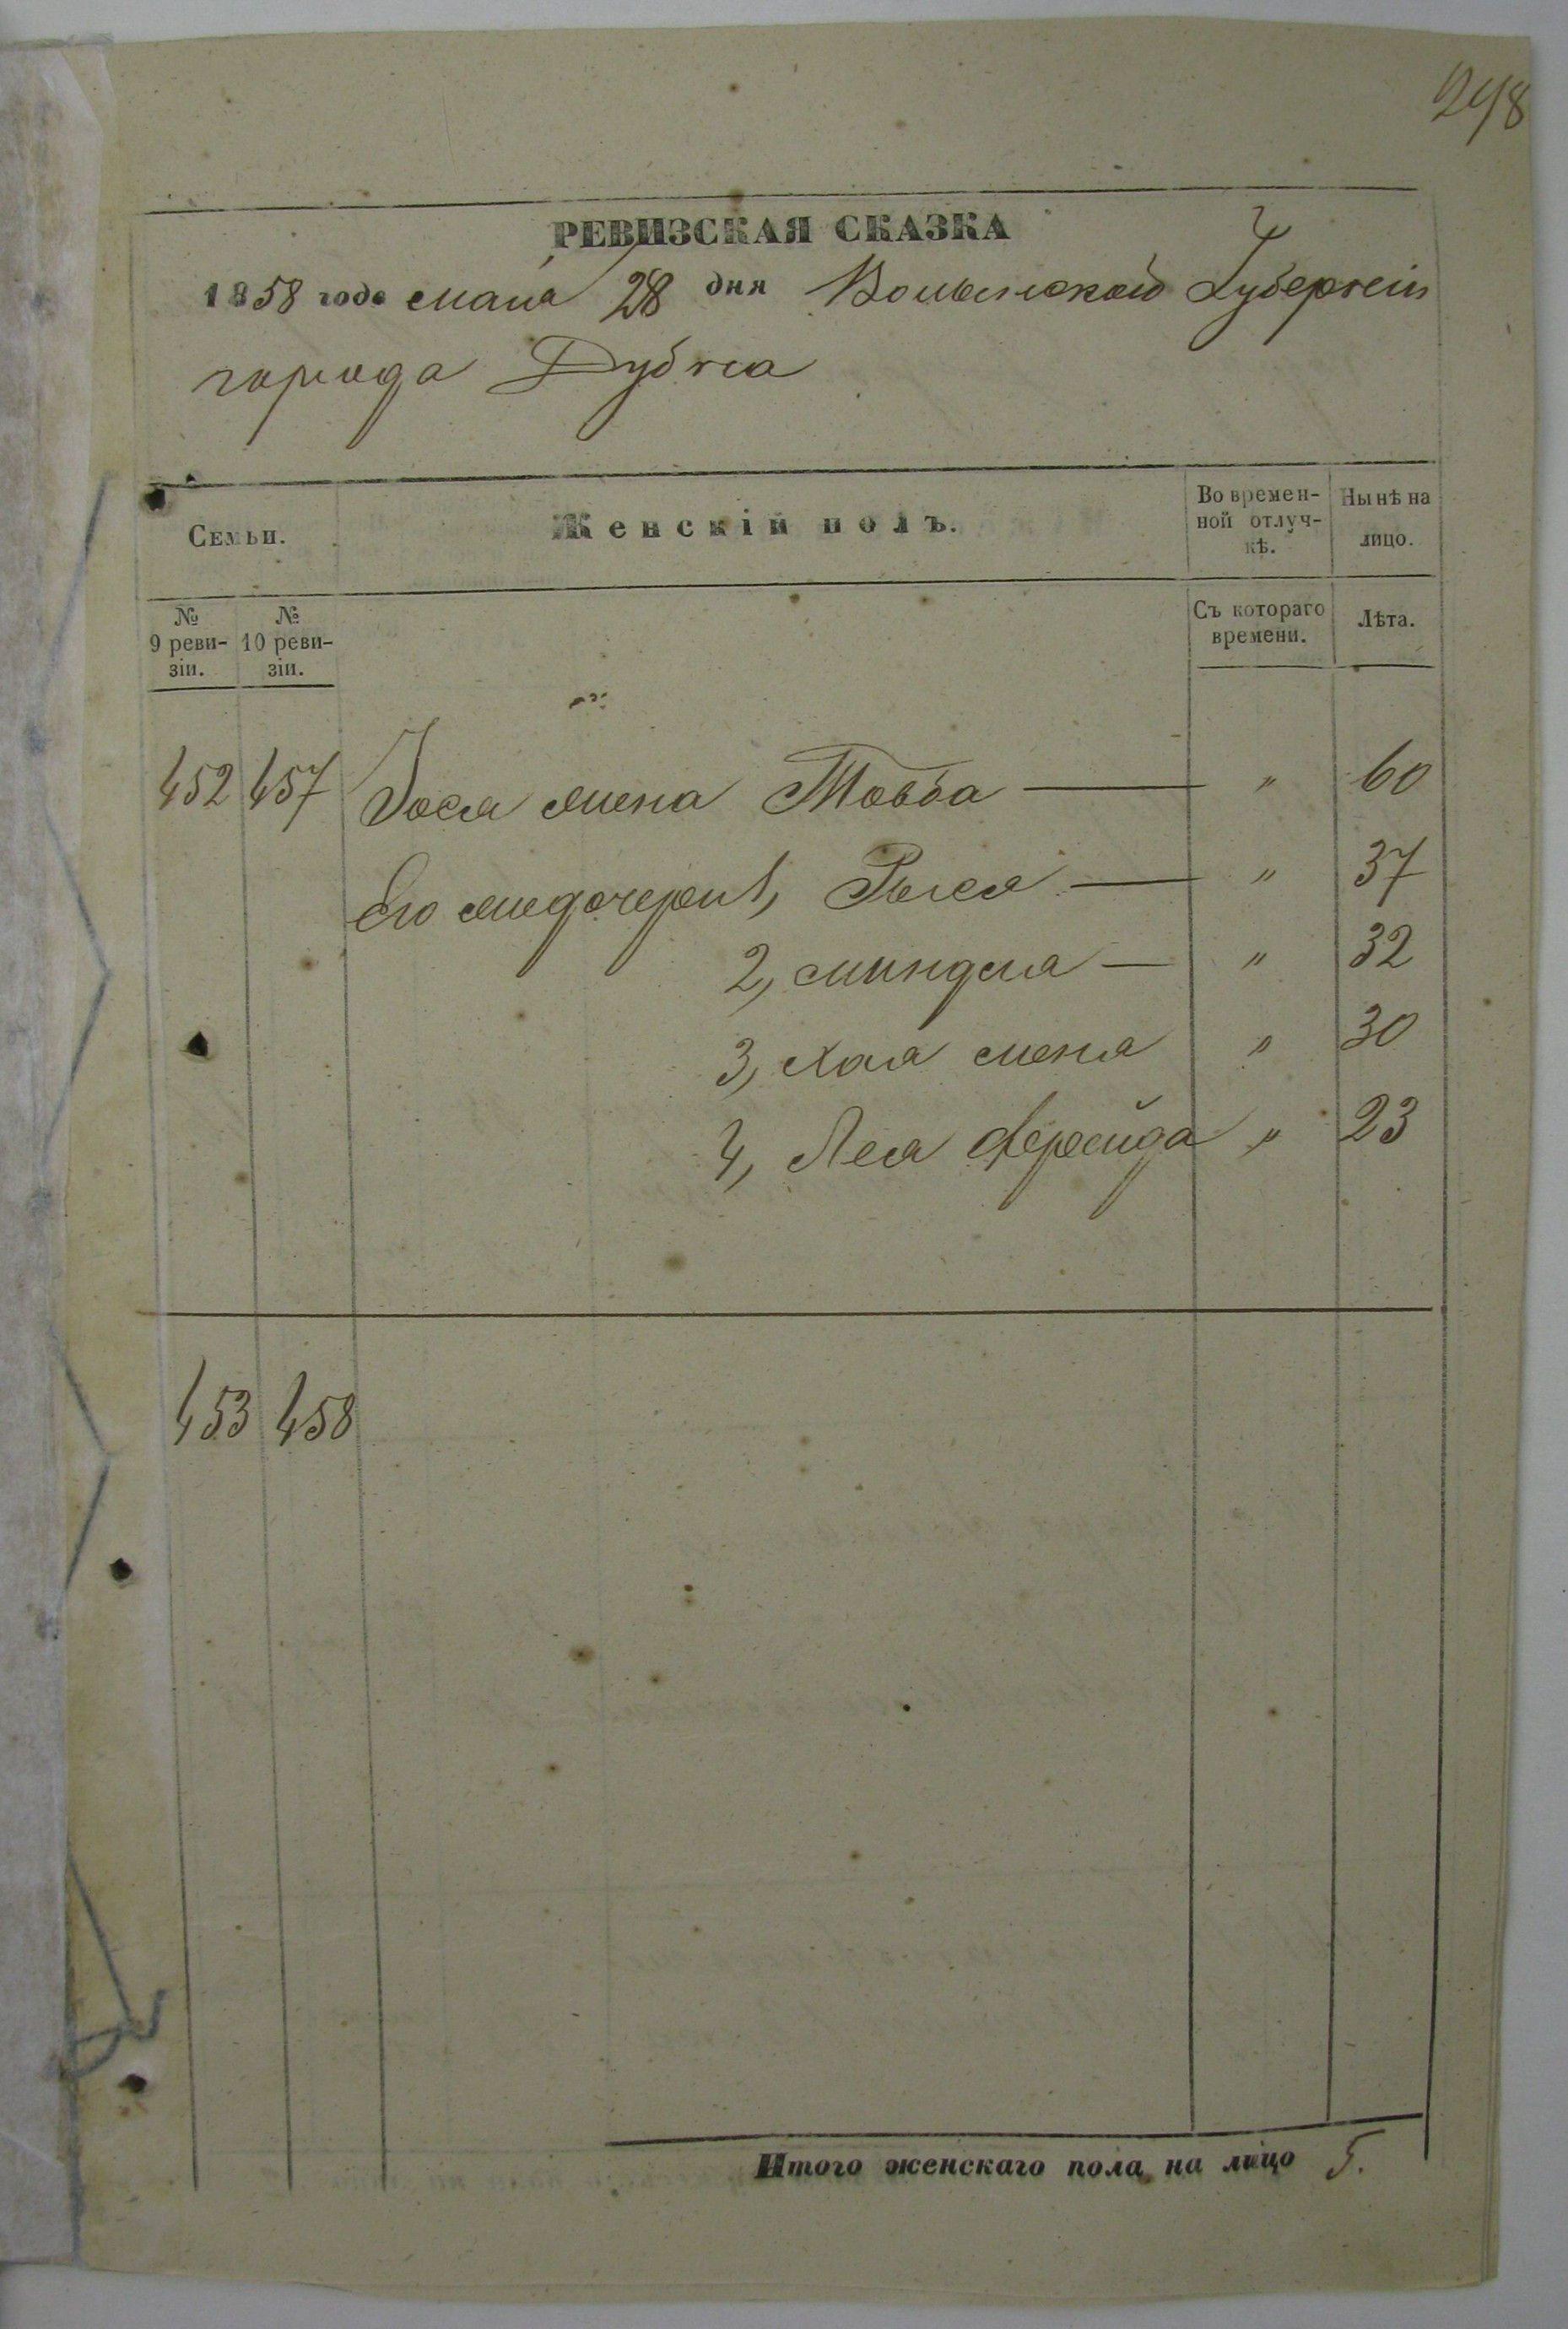 298
РЕВИЗСКАЯ СКАЗКА
1858 года мая 28 дня Волынской Губерніи
города Дубна
Семьи.
Женскій полъ.
Во времен-
ной отлуч-
кѣ.
Нынѣ на
лицо.
№
9 реви-
зіи.
№
10 реви-
зіи.
Съ котораго
времени.
Лѣта.
452 457 Іося жена Товба — " 60
Его же дочери 1, Рыся — " 37
2, Миндля — " 32
3, Хая " 30
4, Лея Фрейда " 23
453 458
Итого женскаго пола на лицо 5.